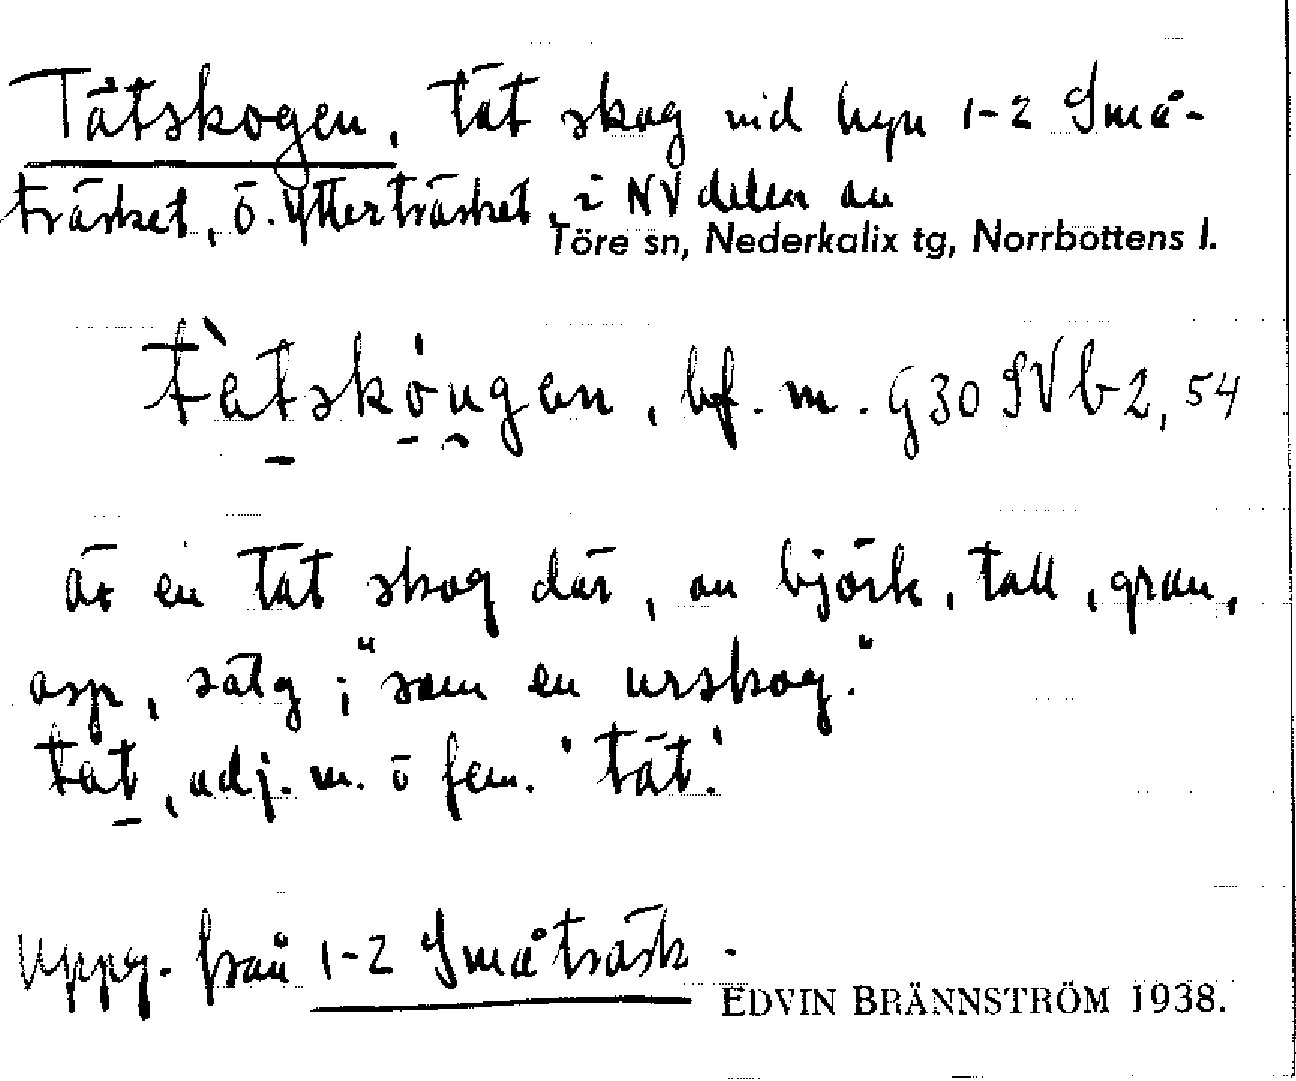 Tätskogen, tät skog vid byn 1-2 Små-
träsket, ö. Ytterträsket, i NV delen av
Töre sn, Nederkalix tg, Norrbottens l.
tètsköugen, bf. m. G30 SV b 2, 54
är en tät skog där, av björk, tall, gran,
asp, sälg; "som en urskog."
tet, adj. m. o fem. 'tät'.
Uppg. från 1-2 Småträsk.
EDVIN BRÄNNSTRÖM 1938.